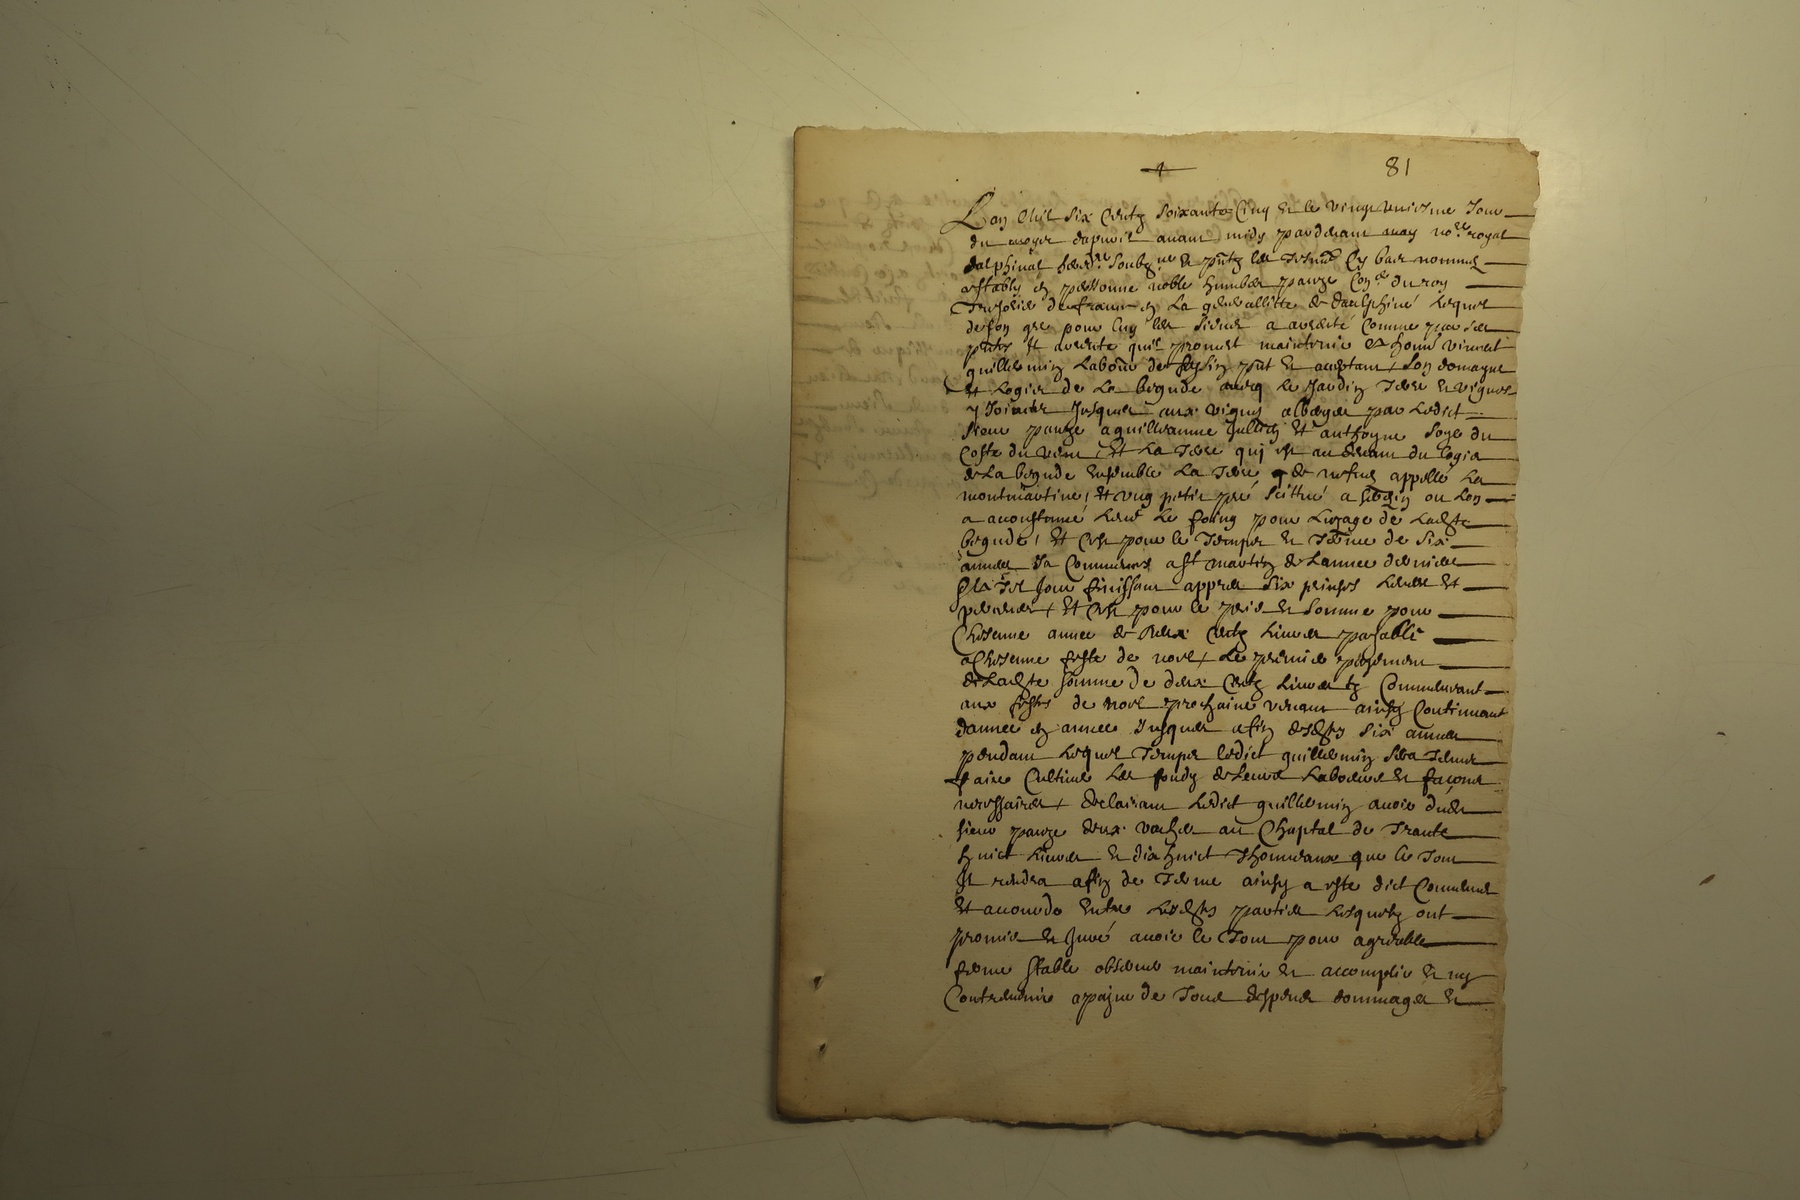 81
Lan Mil Six Centz Soixante Cinq & le vingt uniesme Jour
du moys dapvril avant midy pardevant moy no.re royal
dalphinal soubz.ne & pntz les tesm. Cy bas nommes
estably en personne noble humbert Con.er du roy
Tresorier de france en La generallitte de daulphiné Lequel
de son gre pour luy les siens a arenté Comme par ses
pntes Et arente quil promet maintenir a hon. vincent
guillermin Labour. de pnt & acceptant Son domayne
Et Logis de La begude avecq Le Jardin Terre & vignes
y Jointes Jusques aux vignes albergees par Ledict
Sieur a guilleaume Et anthoyne du
Coste du vent Et La Terre qui est au devant du logis
de La begude Ensemble La Terre de appellé La
montmartine Et ung petit pré Scittué a ou Lon
a acoustumé Le foing pour Lusage de Ladte
begude Et Cest pour le Temps & Terme de Six
annees Ja Commences a St martin de Lannee derniere
Et a tel Jour finissant appres Six prinses Levees Et
perceues Et Cest pour le pris & Somme pour
Chescune annee de Deux Centz Livres payable
a Chescune feste de noel Le premier payement
de Ladte somme de deux Centz Livres Commencant
aux festes de noel prochaine venant ainsy Continuant
dannee en annee Jusques a fin desdtes Six annees
pendant Lequel Temps ledict guillermin sera Tenu
faire Cultiver Les fondz de Leurs Labeures & façons
necessaires declairant Ledict guillermin avoir dud
sieur deux vaches au Chaptal de Trante
huict Livres & dix huict que le Tout
Il rendra a fin de Terme ainsy a este dict Convenu
Et accorde Entre Lesdtes parties Lesquelz ont
promis & Juré avoir le Tout pour agreable
ferme stable observer maintenir & accomplir & ny
Contrevenir a payne de Tous despens dommages &